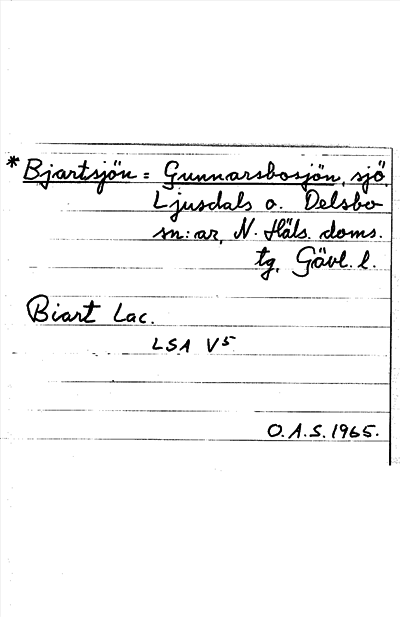 *Bjartsjön = Gunnarsbosjön, sjö,
Ljusdals o. Delsbo
sn:ar, N. Häls. doms.
tg, Gävl. l.
Biart Lac.
LSA V5
O.A.S. 1965.